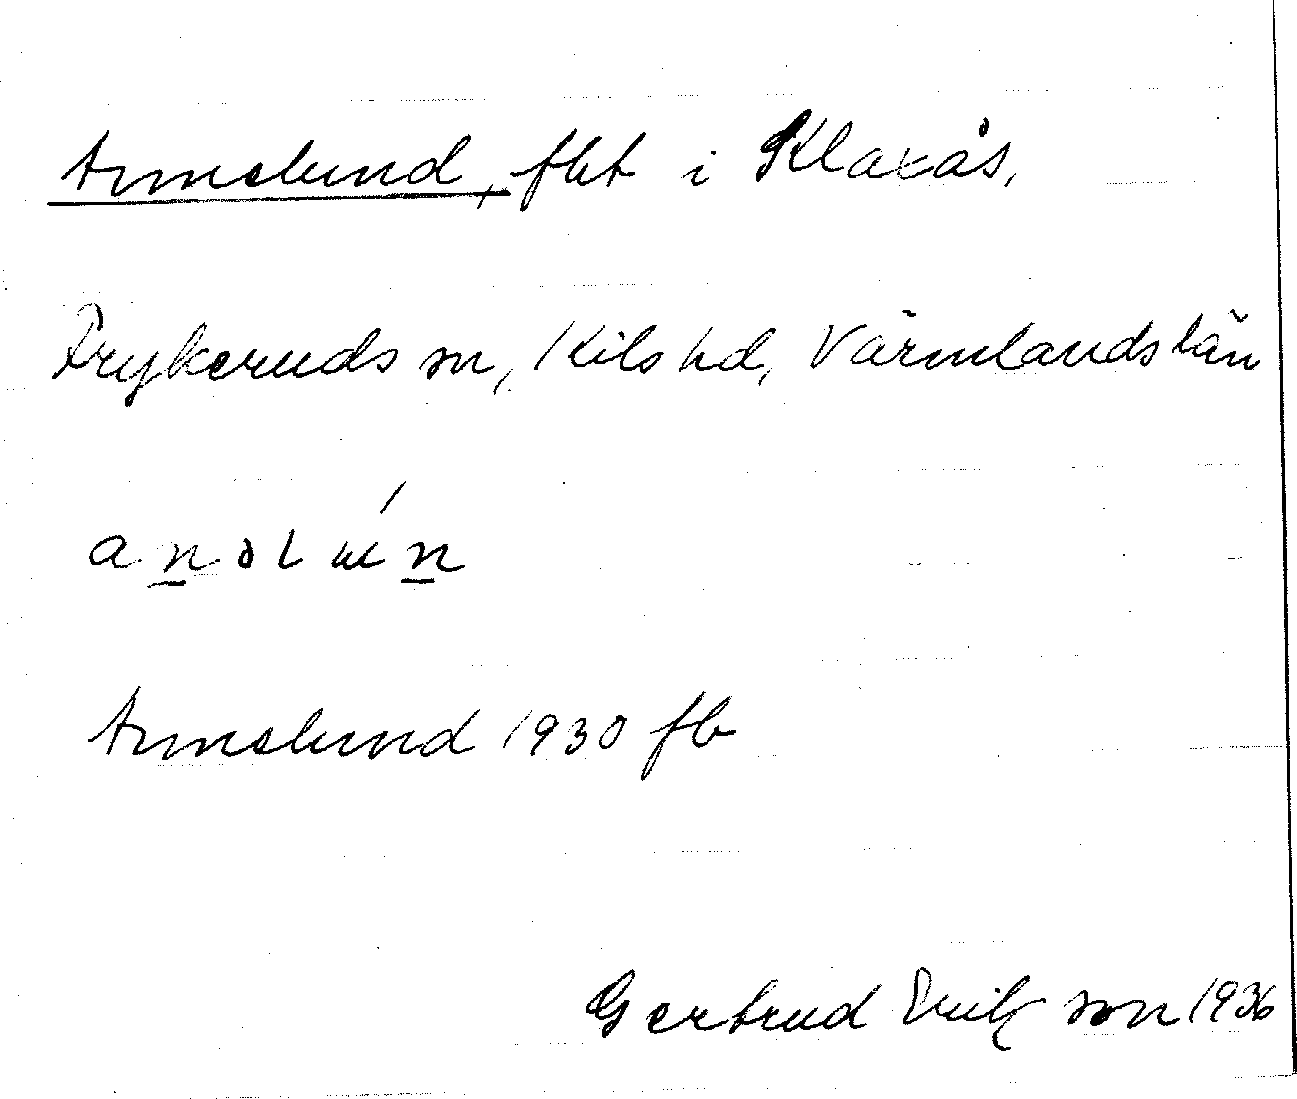 Annelund, fht i Klaxås,
Frykeruds sn, Kils hd, Värmlands län
Annelund 1930 fb
Gertrud Erikson 1936